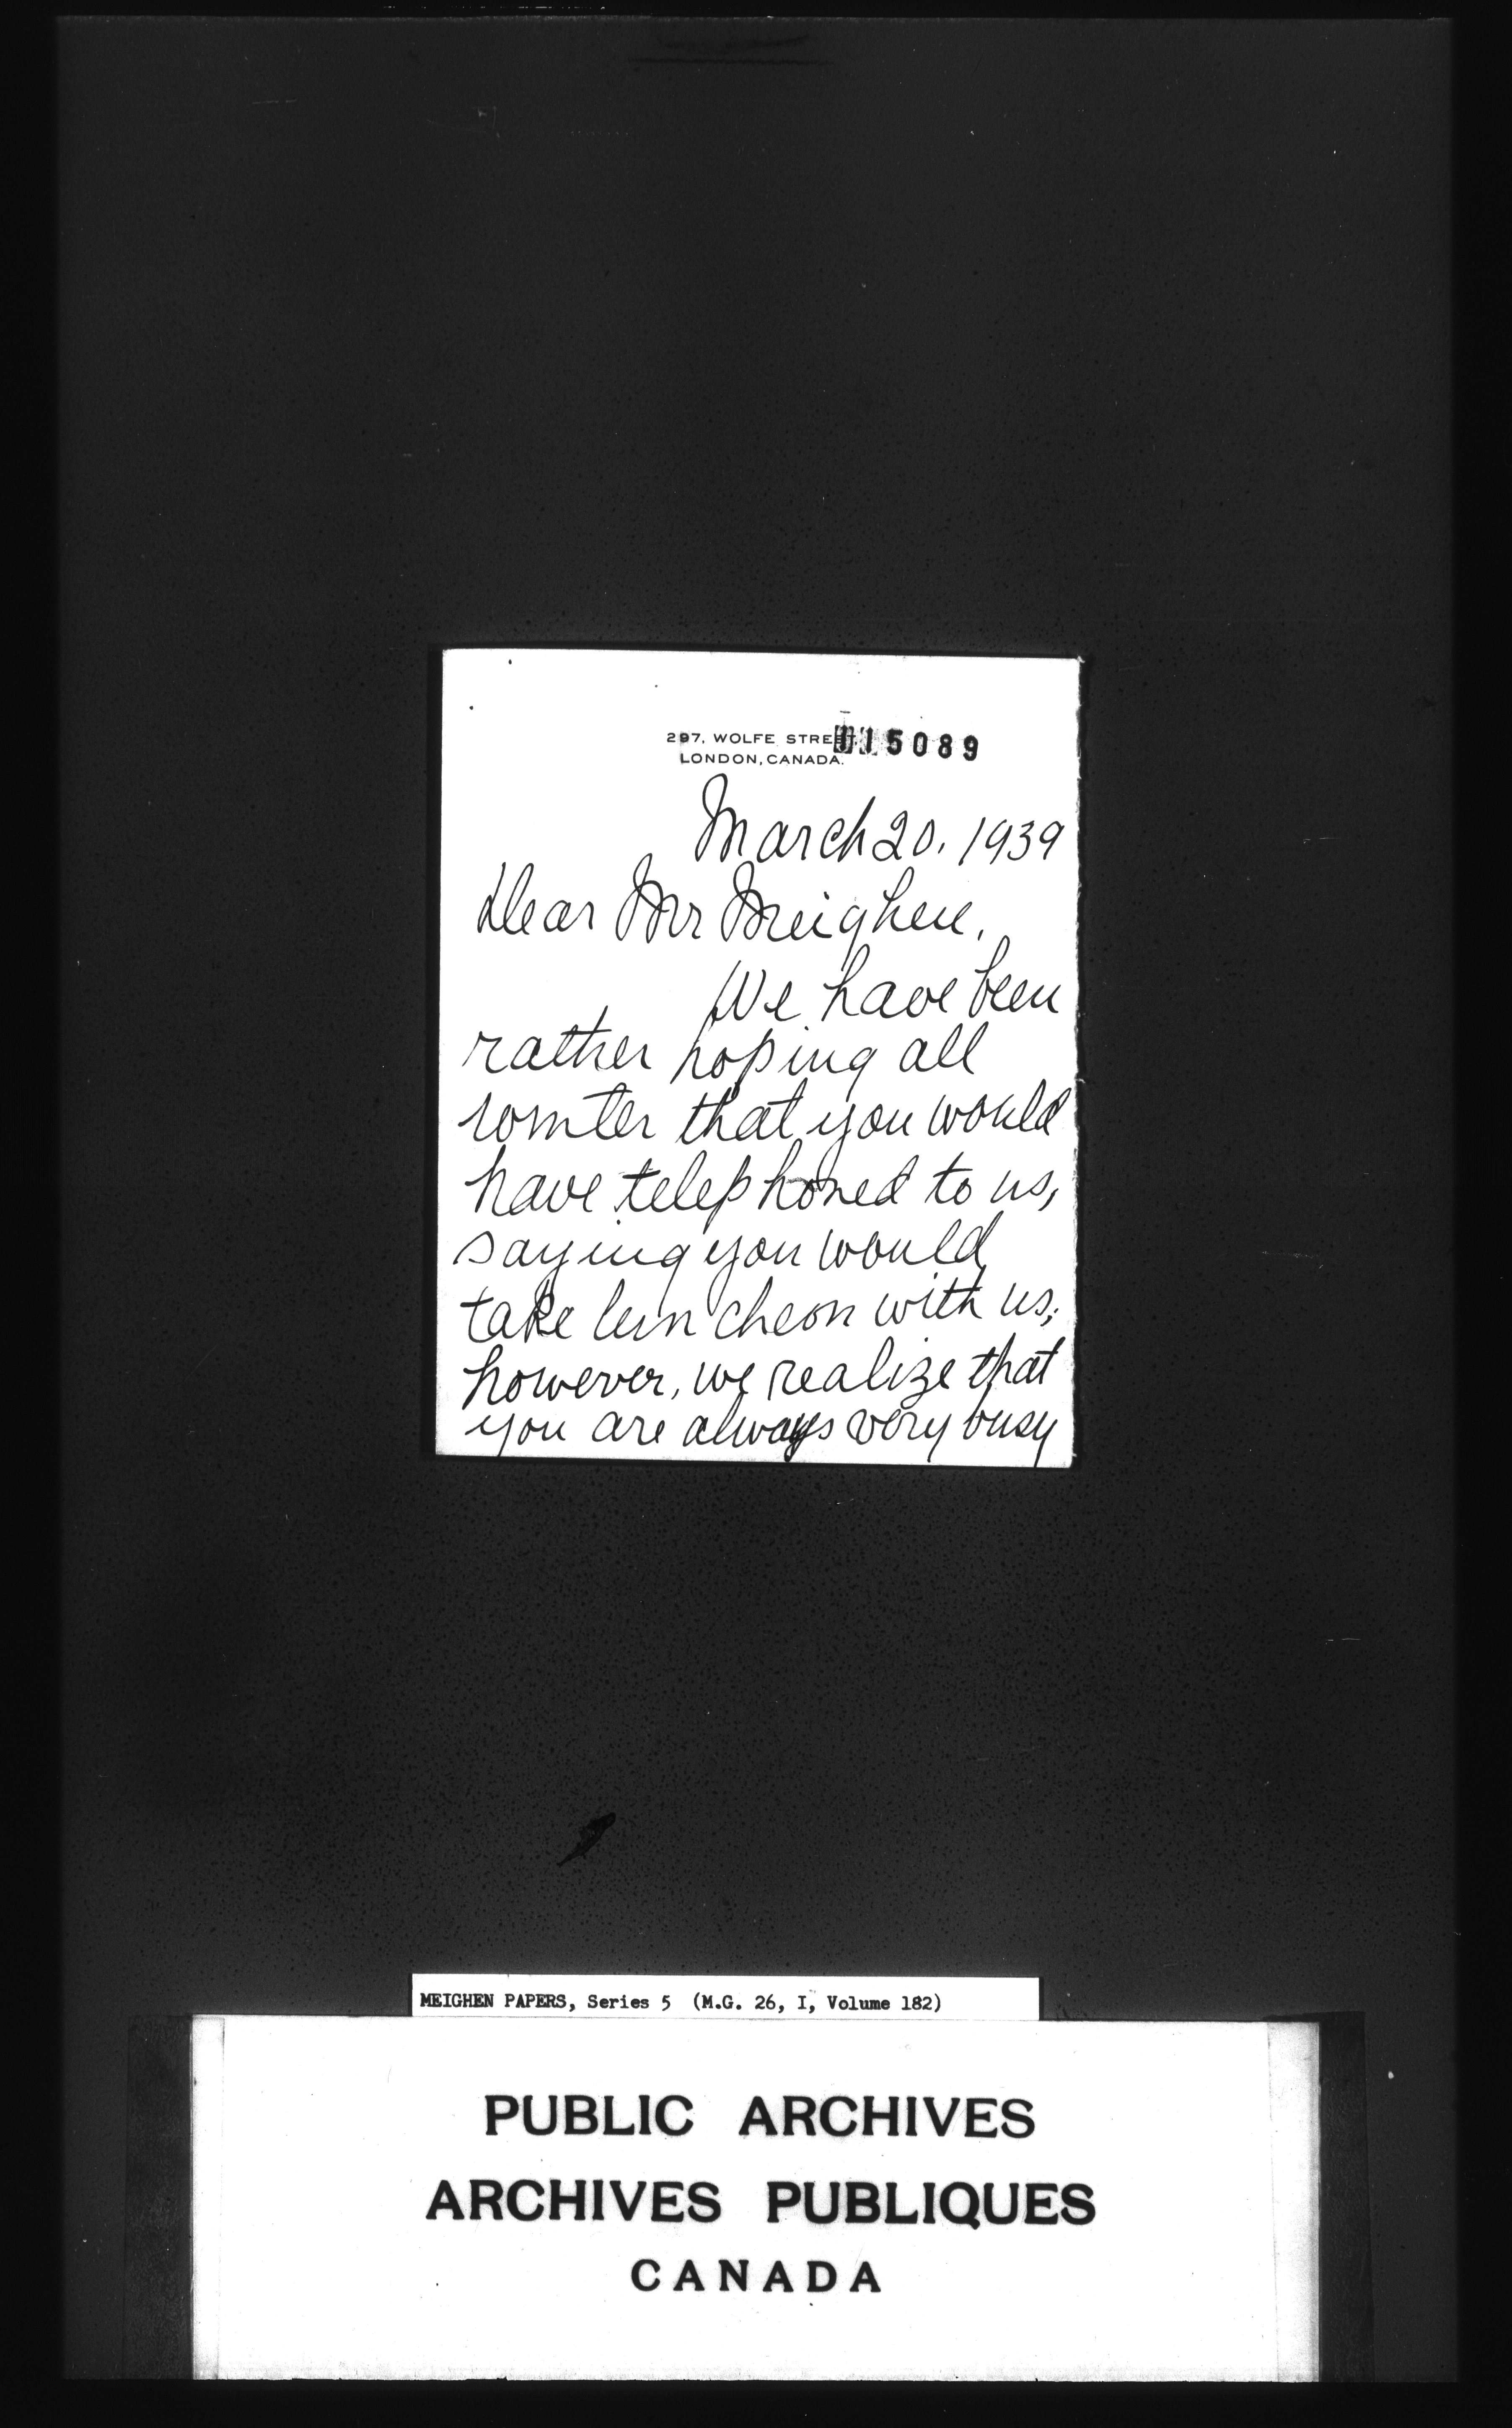 297, WOLFE STREET, 115089
LONDON, CANADA.
March 20. 1939
Dear Mr Meighen,
We have been
rather hoping all
winter that you would
have telephoned to us,
saying you would
take luncheon with us;
however, we realize that
you are always very busy
MEIGHEN PAPERS, Series 5 (M.G. 26, I, Volume 182)
PUBLIC ARCHIVES
ARCHIVES PUBLIQUES
CANADA